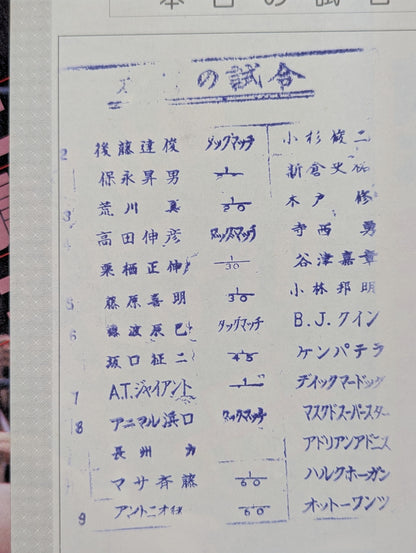 本日の試合
の試合
2 後藤達俊 タッグマッチ 小杉俊二
保永昇男 1/ 新倉史祐
3 荒川 真 20 木戸 修
高田伸彦 タッグマッチ 寺西 勇
栗栖正伸 1/30 谷津嘉章
5 藤原喜明 1/30 小林邦明
6 藤波辰巳 タッグマッチ B.J.クイン
坂口征二 1/45 ケンパテラ
7 A.T.ジャイアント 1 ディックマードック
8 アニマル浜口 タッグマッチ マスクドスーパースター
長州 力 アドリアンアドニス
マサ斉藤 1/60 ハルクホーガン
9 アントニオ 1/60 オットーワンツ